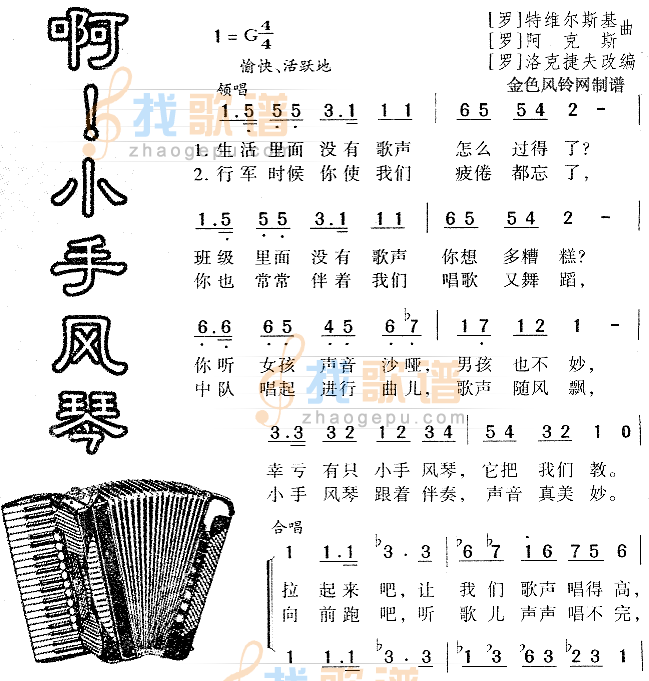 啊！小手风琴
1=G 4/4
愉快、活跃地
[罗]特维尔斯基
[罗]阿克斯 曲
[罗]洛克捷夫改编
金色风铃网制谱
找歌谱
zhaogepu.com
领唱
1.5 55 3.1 11 | 65 54 2 -
1.生活 里面 没有 歌声 怎么 过得 了?
2.行军 时候 你使 我们 疲倦 都忘 了,
1.5 55 3.1 11 | 65 54 2 -
班级 里面 没有 歌声 你想 多糟 糕?
你也 常常 伴着 我们 唱歌 又舞 蹈,
6.6 65 45 6♭7 | 17 12 1 -
你听 女孩 声音 沙哑, 男孩 也不 妙,
中队 唱起 进行 曲儿, 歌声 随风 飘,
找歌谱
zhaogepu.com
3.3 32 12 34 | 54 32 1 0
幸亏 有只 小手 风琴, 它把 我们 教。
小手 风琴 跟着 伴奏, 声音 真美 妙。
合唱
1 1.1 ♭3.3 | ♭6♭7 16 75 6
拉 起来 吧, 让 我们 歌声 唱得 高,
向 前跑 吧, 听 歌儿 声声 唱不 完,
1 1.1 ♭3.3 | ♭13 63 ♭23 1